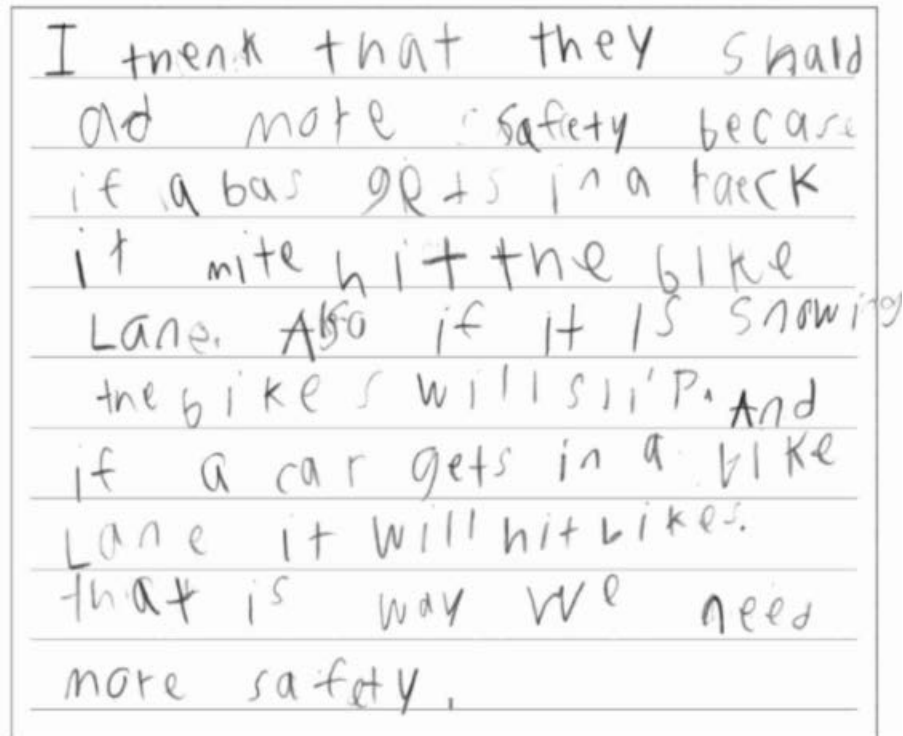 I thenk that they shald
ad more safiety becase
if a bas gets in a raeck
it mite hit the bike
Lane. Also if it is snowing
the bikes will slip. And
if a car gets in a bike
Lane it will hit bikes.
that is way we need
more safety.